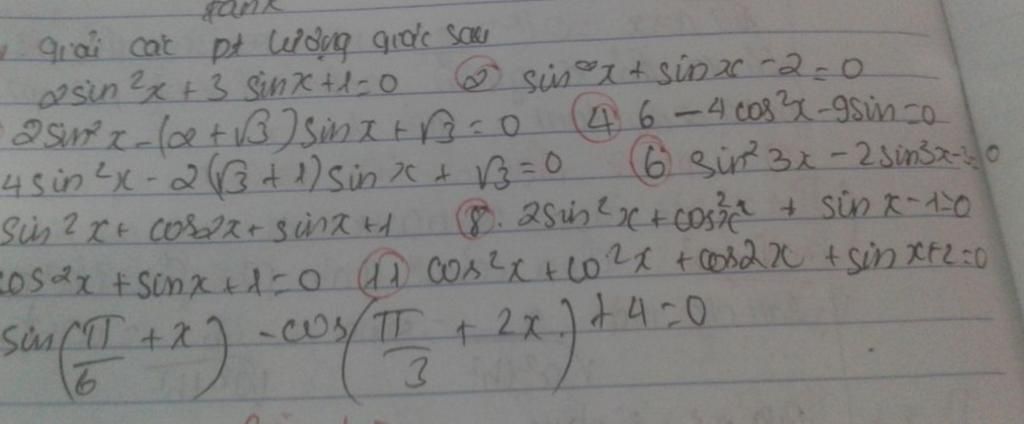 tanx
giải các pt lượng giác sau
2sin²x + 3 sinx + 1 = 0 ② sin²x + sinx - 2 = 0
2sin²x - (2 + √3) sinx + √3 = 0 ④ 6 - 4cos²x - 9sin = 0
4sin²x - 2(√3 + 1) sinx + √3 = 0 ⑥ sin²3x - 2sin3x = 0
sin²x + cos2x + sinx + 1 ⑧. 2sin²x + cos²x + sinx - 1 = 0
cos2x + sinx + 1 = 0 ⑪ cos²x + co²x + cos2x + sinx + 2 = 0
sin(π/6 + x) - cos(π/3 + 2x) + 4 = 0